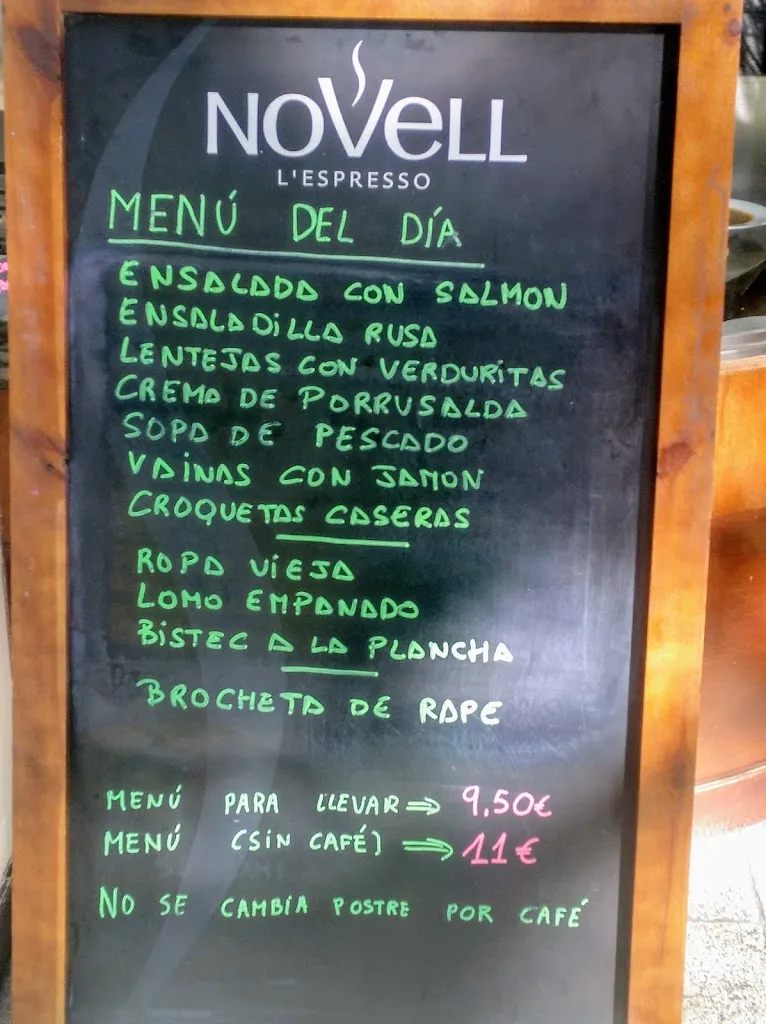 NOVELL
L'ESPRESSO
MENÚ DEL DÍA
ENSALADA CON SALMON
ENSALADILLA RUSA
LENTEJAS CON VERDURITAS
CREMA DE PORRUSALDA
SOPA DE PESCADO
VAINAS CON JAMON
CROQUETAS CASERAS
ROPA VIEJA
LOMO EMPANADO
BISTEC A LA PLANCHA
BROCHETA DE RAPE
MENÚ PARA LLEVAR ⇒ 9,50€
MENÚ (SIN CAFÉ) ⇒ 11€
NO SE CAMBÍA POSTRE POR CAFÉ